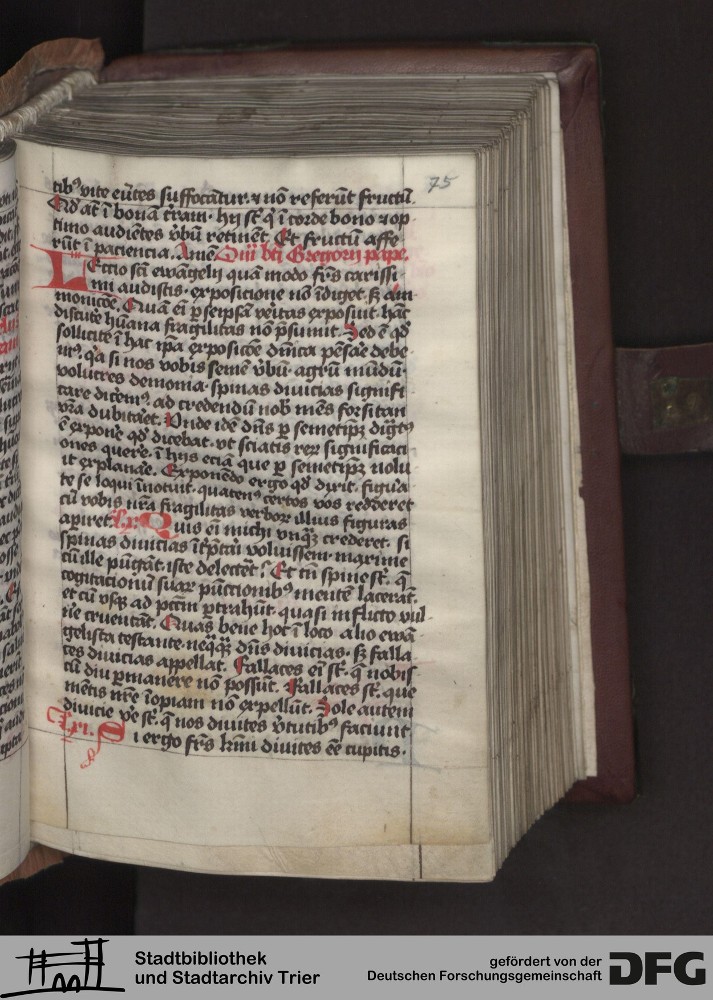 75
tibꝰ vite eūtes suffocātur· ⁊ nō referūt fructū.
Qd āt ī bonā t̄ram· hij st̄ q̄ ī corde bono ⁊ op
timo audiētes v̄bū retinēt. Et fructū affe
rūt ī paciencia. Omel̄ bt̄i Gregorij pape.
Lectio sc̄i ewāgelij quā modo fr̄s carissi
mi audistis· exposicione nō īdiget· sꝫ am̄
monicōe. Quā eī ꝑ seipsā v̄itas exposuit· hāc
discute hūana fragilitas nō p̄sumit. Sed ē qd̄
sollicite ī hac ip̄a exposicōe dn̄ica pēsare debe
ꝰ, q̄a si nos vobis semē v̄bū· agrū mūdū·
volucres demonia· spinas diuicias signifi
care dicem̄ꝰ· ad credendū nob̄ mēs forsitan
vr̄a dubitaret. Vnde idē dn̄s ꝑ semetip̄ꝫ digtꝰ
ē exponē qd̄ dicebat· vt sciatis reꝝ significaci
ones querē· ī hijs eciā que ꝑ semetip̄ꝫ nolu
it explanāe. Exponēdo ergo qd̄ dixit· figu̾a
te se loqui īnotuit· quatenꝰ certos vos redderet
cū vobis nr̄a fragilitas verboꝝ illius figuras
apiret. Quis eī michi vnq̄ꝫ crederet· si
spinas diuicias īt̄p̄tari voluissem· maxime
cū ille pūgāt· iste delectēt. Et tn̄ spine st̄· q̄
cogitacionū suaꝝ pūccionibꝰ mentē lacerāt·
et cū vsqꝫ ad pctm̄ ꝑtrahūt· quasi inflicto vul
n̄e cruentāt. Quas bene hoc ī loco alio ewā
gelista testante· neq̄q̄ꝫ dn̄s diuicias· sꝫ falla
ces diuicias appellat. Fallaces eī st̄· q̄ nobis
cū diu ꝑmanere nō possūt. Fallaces st̄· que
mētis nr̄e īopiam nō expellūt. Sole autem
diuicie v̄e st̄· q̄ nos diuites v̄tutibꝰ faciunt.
Si ergo fr̄s kr̄mi diuites eē cupitis·
Stadtbibliothek
und Stadtarchiv Trier
gefördert von der
Deutschen Forschungsgemeinschaft
DFG